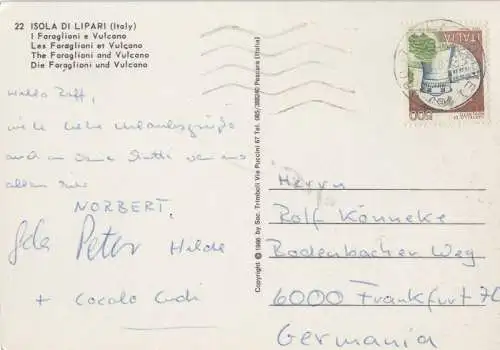 22 ISOLA DI LIPARI (Italy)
I Faraglioni e Vulcano
Les Faraglioni et Vulcano
The Faraglioni and Vulcano
Die Faraglioni und Vulcano
Hallo Rolf,
viele liebe Urlaubsgrüße
auch an Deine Mutti von uns
allen hier
NORBERT,
Peter Hilde
+ Cocolo
Copyright © 1986 by Soc. Trimboli Via Puccini 67 Tel. 085/388240 Pescara (Italia)
ITALIA
500
Herrn
Rolf Könneke
Bodenbacher Weg
6000 Frankfurt 70
Germania